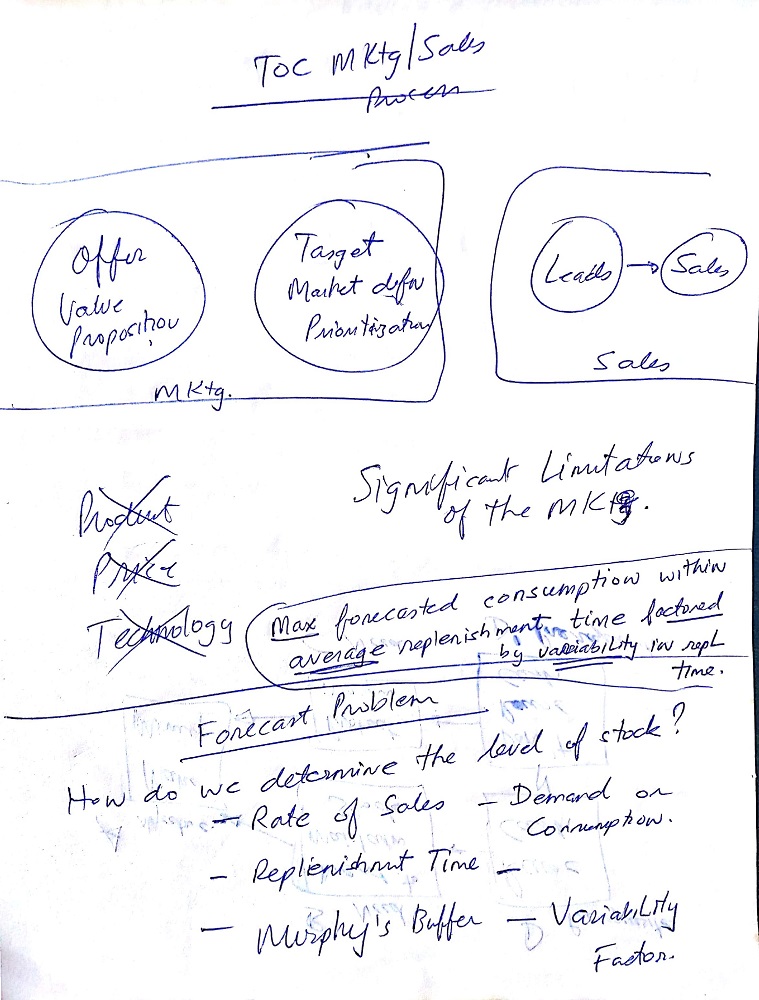 TOC MKtg/Sales
Process
Offer
Value
Proposition
Target
Market defn
Prioritization
MKtg.
Leads → Sales
Sales
Significant Limitations
of the MKtg.
Product
Price
Technology
Max forecasted consumption within
average replenishment time factored
by variability in repl
time.
Forecast Problem
How do we determine the level of stock?
– Rate of Sales – Demand or
Consumption.
– Replenishmnt Time –
– Murphy's Buffer – Variability
Factor.